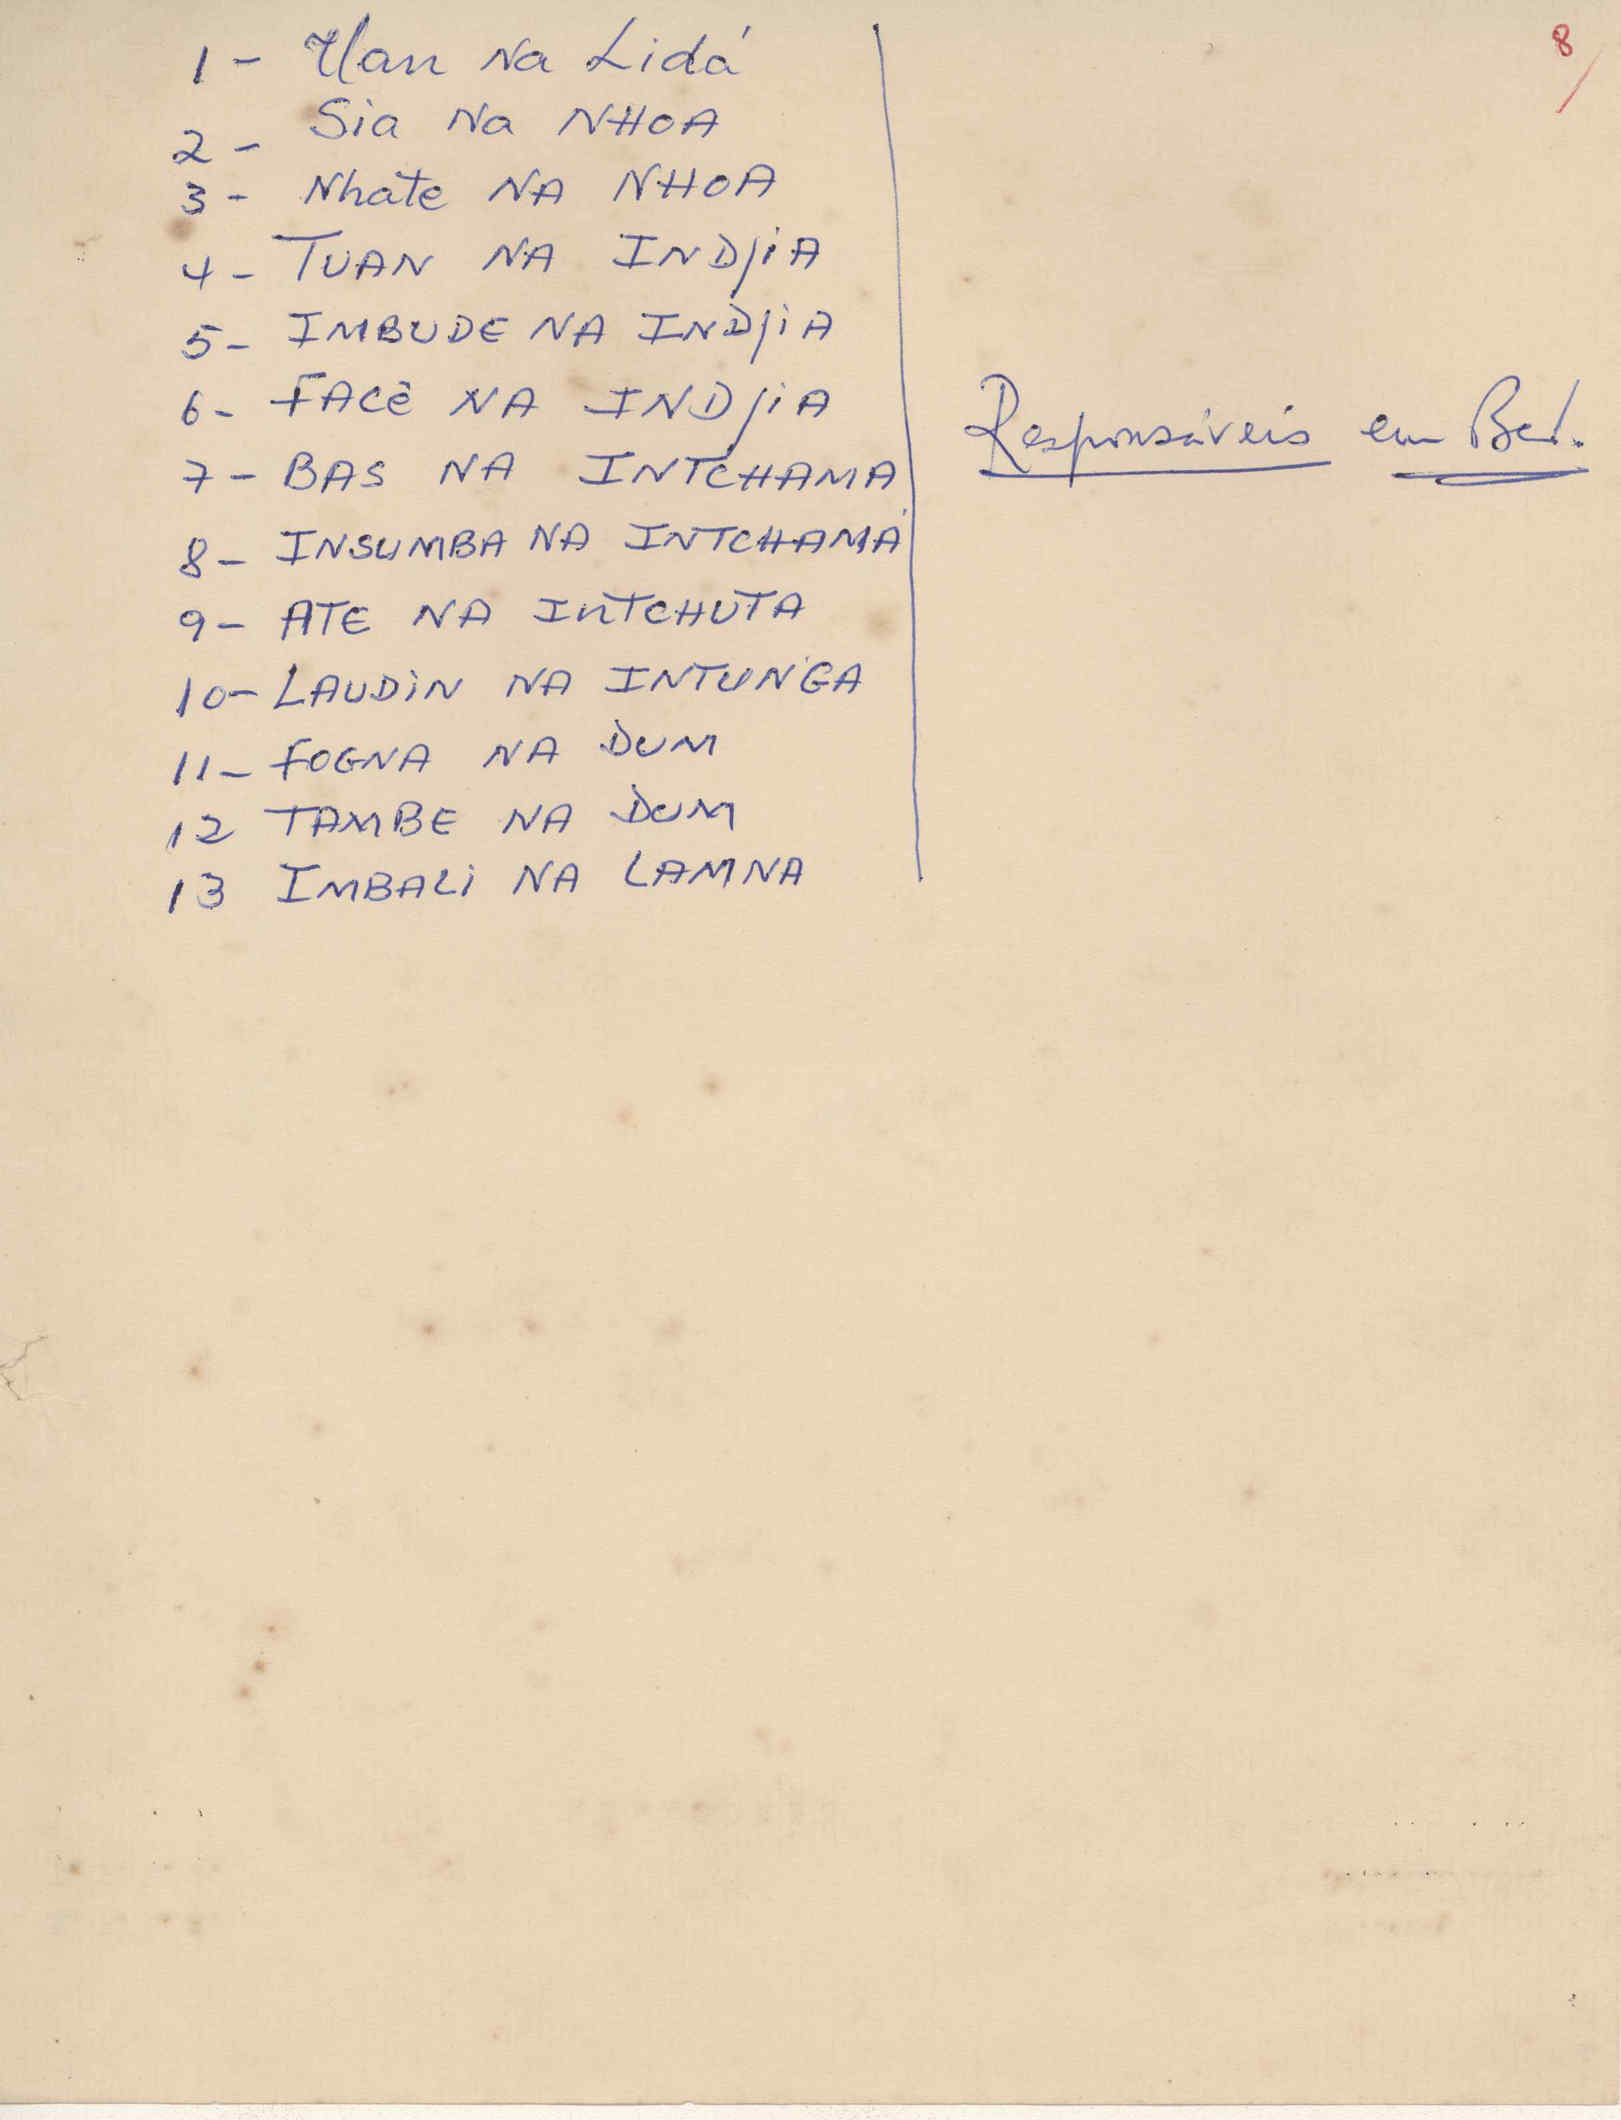 8/
1 - Ulan Na Lidá
2 - Sia Na NHOA
3 - Nhate NA NHOA
4 - TUAN NA INDjiA
5 - IMBUDE NA INDjiA
6 - FACÉ NA INDjiA
7 - BAS NA INTCHAMA
8 - INSUMBA NA INTCHAMÁ
9 - ATE NA INTCHUTA
10 - LAUDiN NA INTUNGA
11 - FOGNA NA DUM
12 TAMBE NA DUM
13 IMBALi NA LAMNA
Responsáveis em